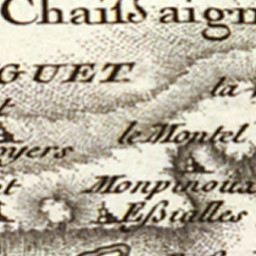 Chaiſsaign
GUET
la
le Montel
oyers
Monpinoux
Eſsialles